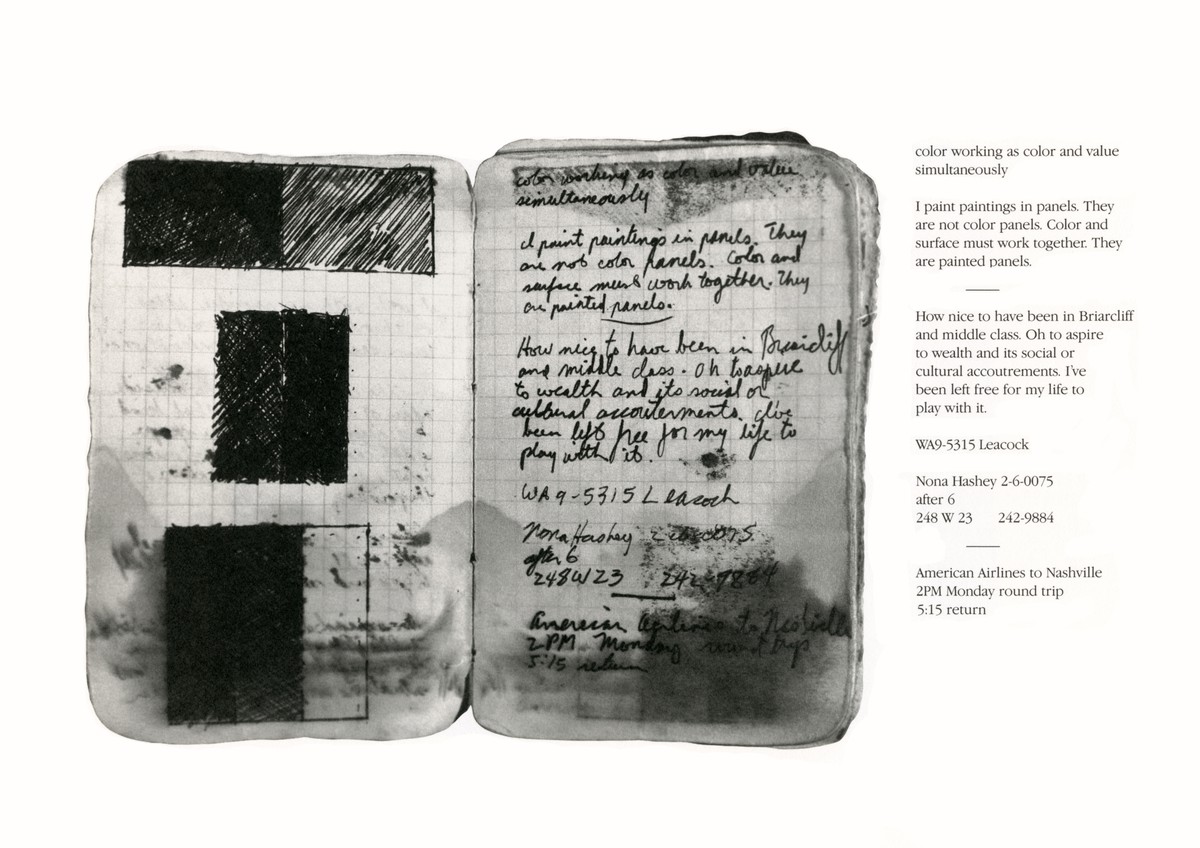 color working as color and value
simultaneously
I paint paintings in panels. They
are not color panels. Color and
surface must work together. They
are painted panels.
How nice to have been in Briarcliff
and middle class. Oh to aspire
to wealth and its social or
cultural accouterments. I've
been left free for my life to
play with it.
WA9-5315 Leacock
Nona Hashey 2-6-0075
after 6
248 W 23 242-9884
American Airlines to Nashville
2PM Monday round trip
5:15 return
color working as color and value
simultaneously
I paint paintings in panels. They
are not color panels. Color and
surface must work together. They
are painted panels.
How nice to have been in Briarcliff
and middle class. Oh to aspire
to wealth and its social or
cultural accoutrements. I've
been left free for my life to
play with it.
WA9-5315 Leacock
Nona Hashey 2-6-0075
after 6
248 W 23 242-9884
American Airlines to Nashville
2PM Monday round trip
5:15 return